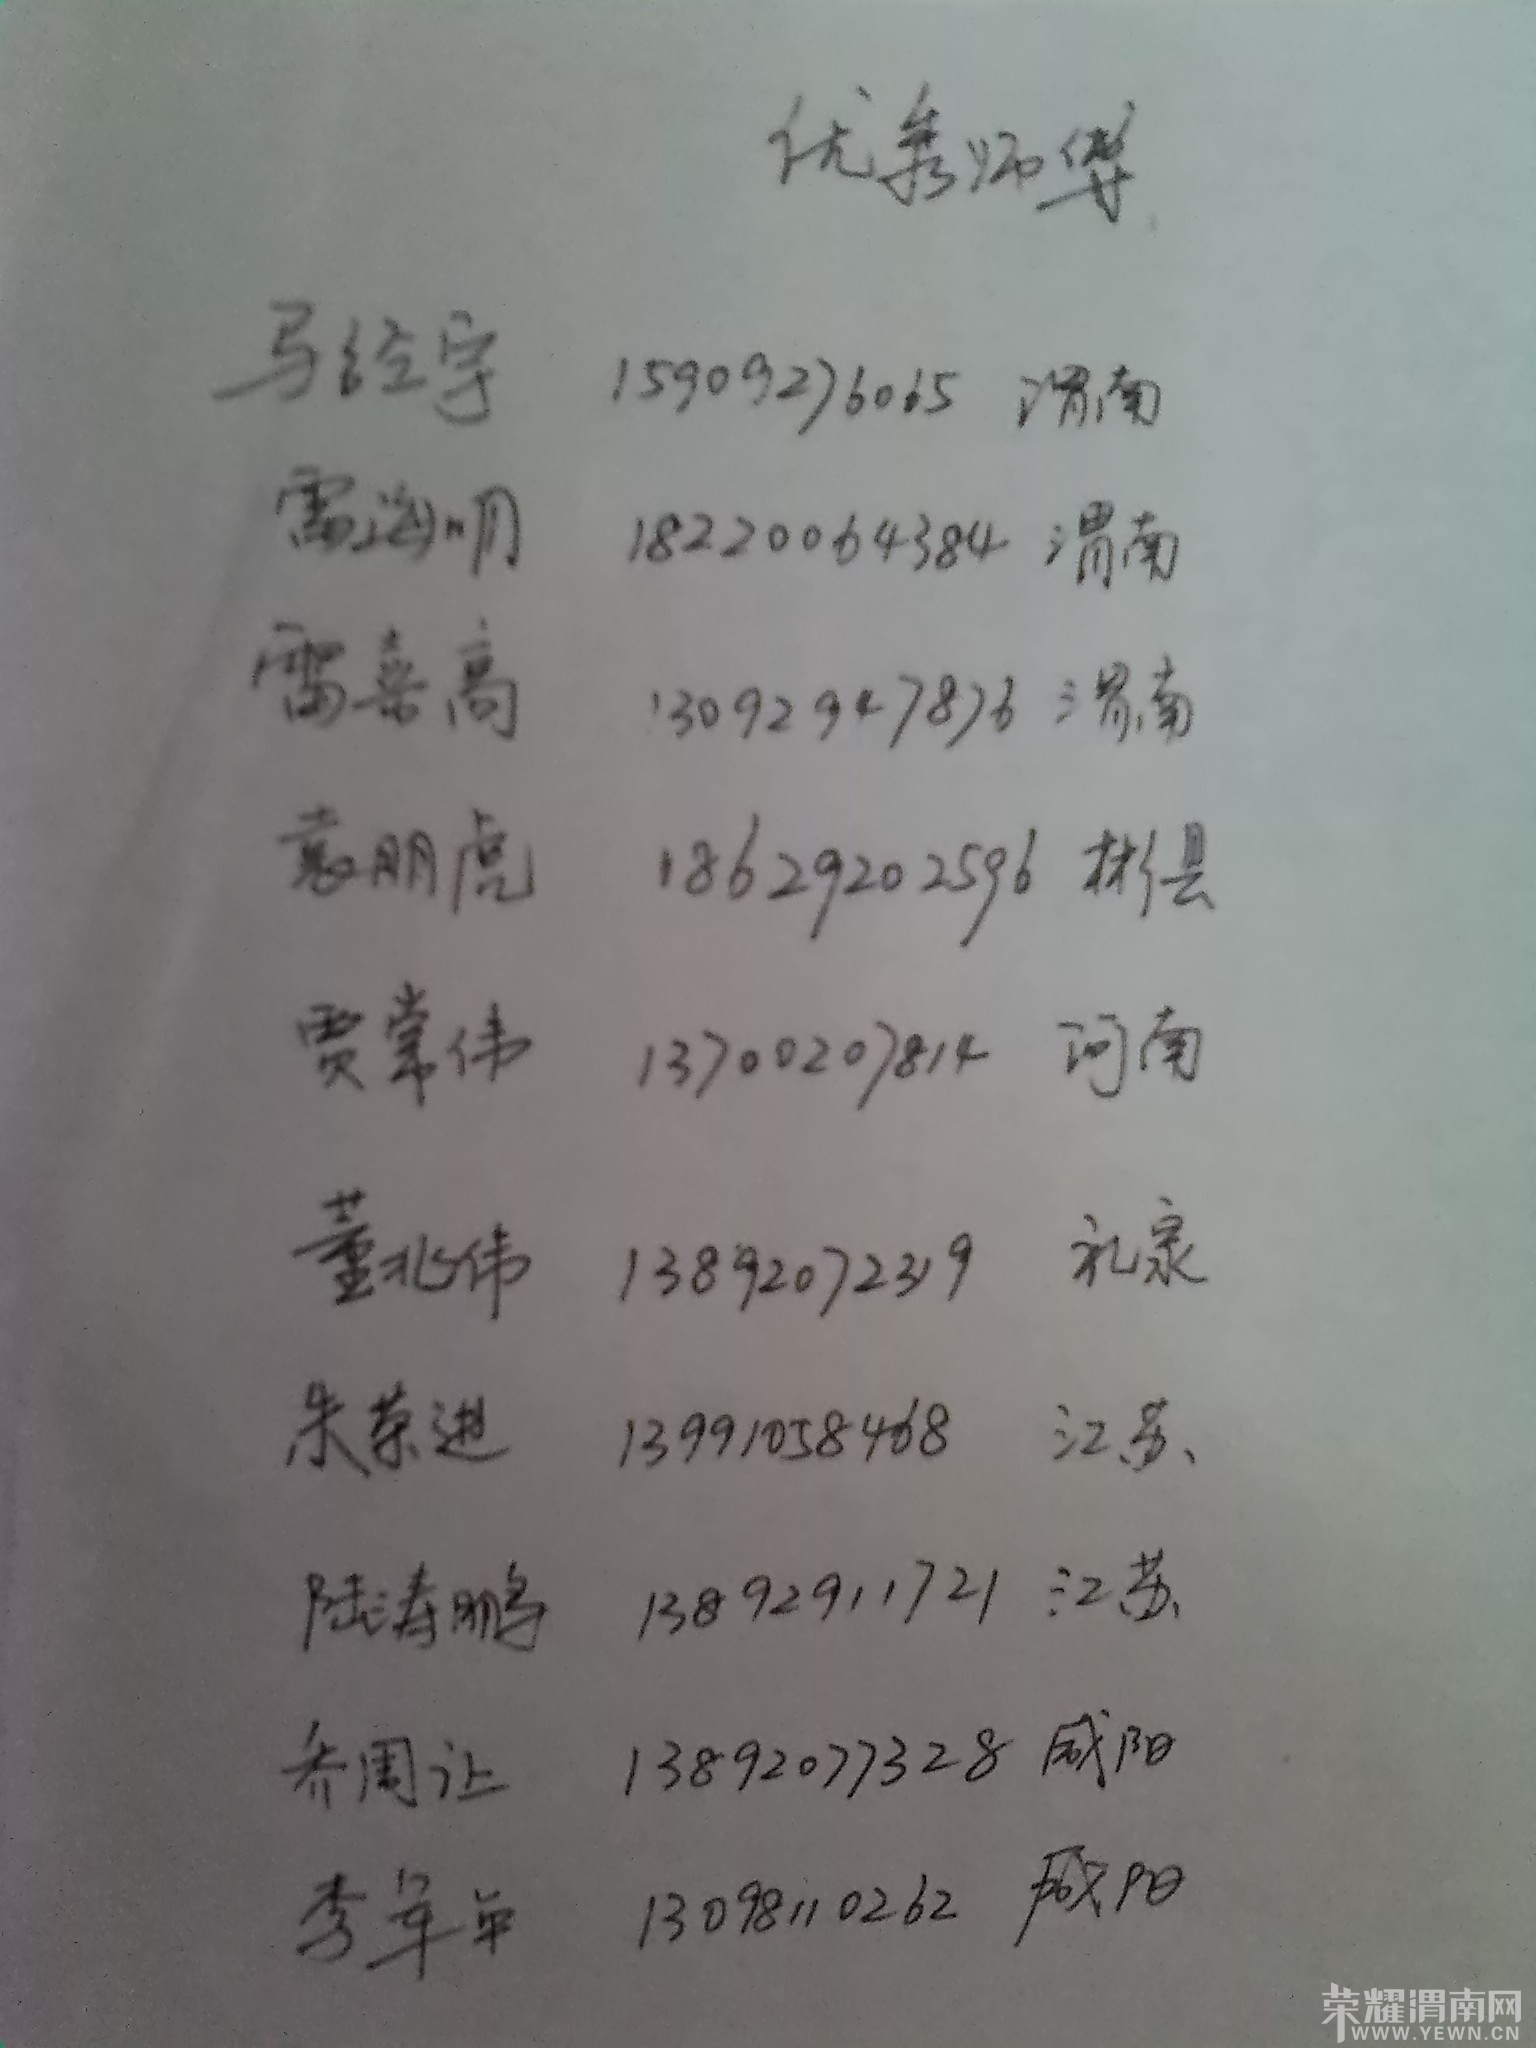 优秀师傅
马经宇 15909276065 渭南
雷海明 18220064384 渭南
雷喜高 13092947876 渭南
袁朋虎 18629202596 彬县
贾常伟 13700207814 河南
董兆伟 13892072319 礼泉
朱荣进 13991058468 江苏
陆涛鹏 13892911721 江苏
乔周让 13892077328 咸阳
李军 13098110262 咸阳
荣耀渭南网
WWW.YEWN.CN